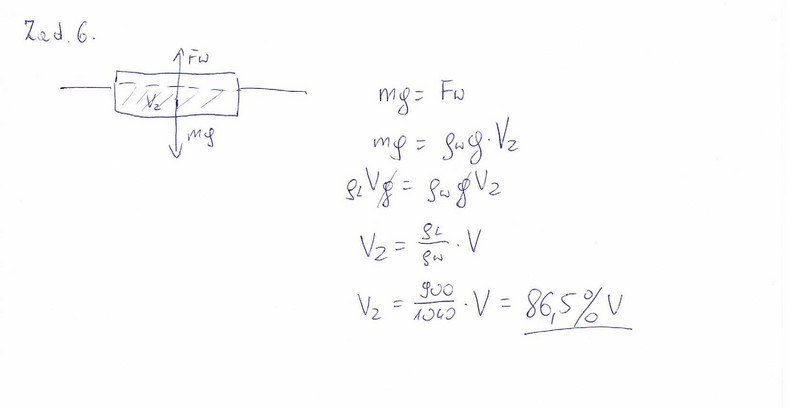 Zad. 6.
Fw
Vz
mg
mg = Fw
mg = ρwg·Vz
ρLVg = ρwgVz
Vz = ρL/ρw · V
Vz = 900/1040 · V = 86,5% V